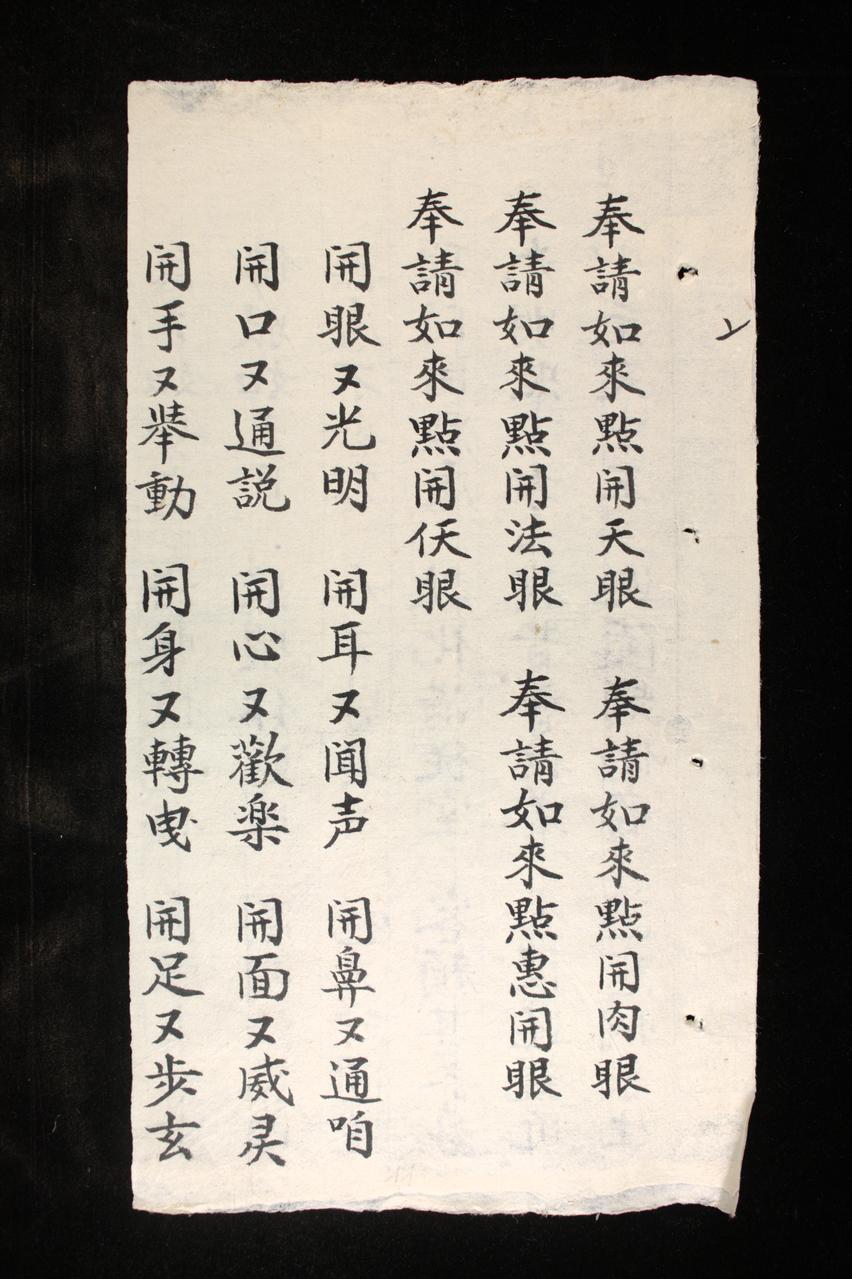 奉請如來點開天眼　奉請如來點開肉眼
奉請如來點開法眼　奉請如來點惠開眼
奉請如來點開仸眼
開眼又光明　開耳又闻声　開鼻又通咱
開口又通説　開心又歡楽　開面又威灵
開手又举動　開身又轉曳　開足又步玄